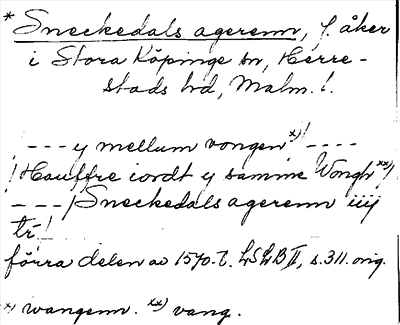 * Sneckedals agerenn, f. åker
i Stora Köpinge sn, Herre-
stads hd, Malm. l.
- - - y mellum vongen x)! - - - -
! Hauffre iordt y samme Wongh xx)
- - - ! Sneckedals agerenn iiij
tr!
förra delen av 1570-t. LSLB II, s. 311. orig.
x) wangenn. xx) vang.